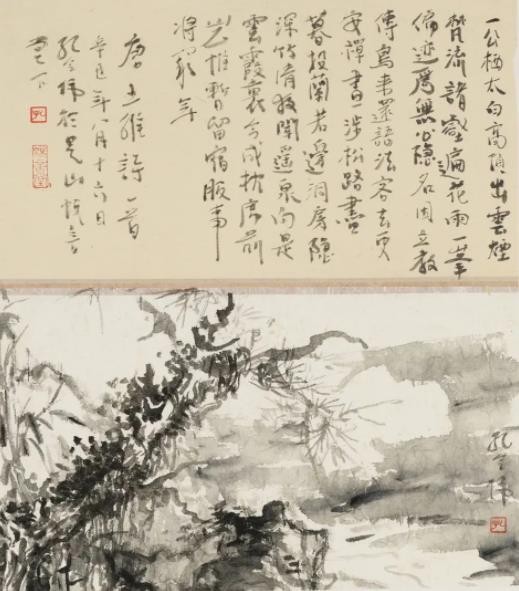 一公棲太白高頂出雲煙
梵流諸壑遍花雨一峯
偏迹為無心隱名因立教
傳鳥來還語法客去更
安禪晝涉松路盡
暮投蘭若邊洞房隱
深竹清夜聞遙泉向是
雲霞裏今成枕席前
豈惟暫留宿服事
將窮年
唐王維詩一首
辛巳年八月十六日
孔
孔